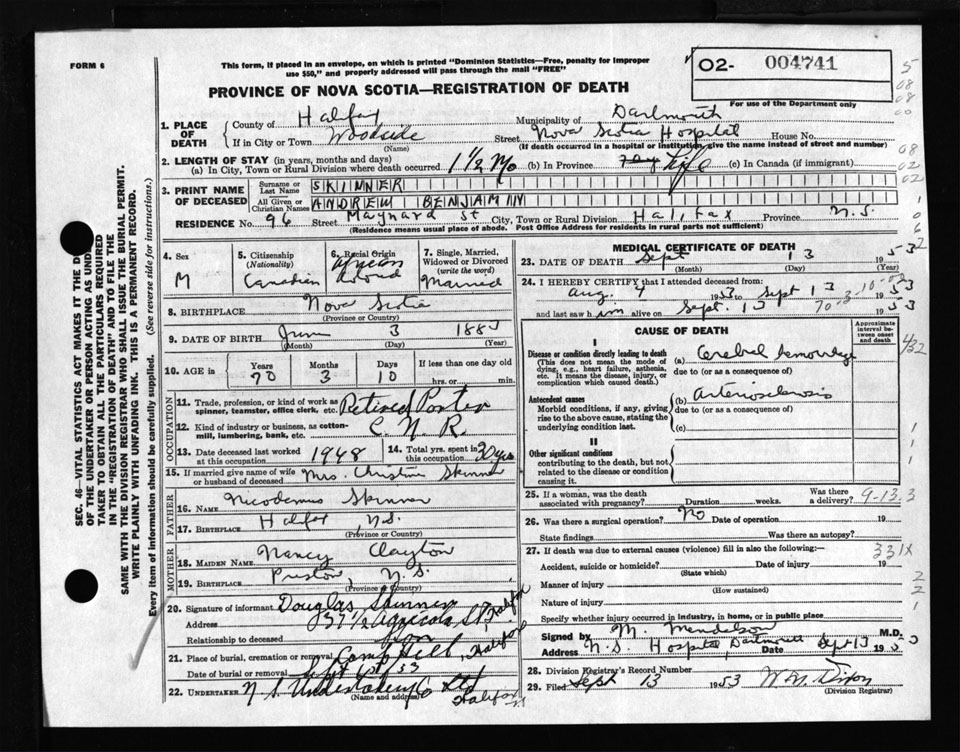 FORM 6
This form, if placed in an envelope, on which is printed "Dominion Statistics—Free, penalty for improper
use $50," and properly addressed will pass through the mail "FREE"
O2- 004741
For use of the Department only
PROVINCE OF NOVA SCOTIA—REGISTRATION OF DEATH
1. PLACE OF DEATH
County of Halifax Municipality of Dartmouth
If in City or Town Woodside Street Nova Scotia Hospital House No.
(Name) (If death occurred in a hospital or institution, give the name instead of street and number)
2. LENGTH OF STAY (in years, months and days)
(a) In City, Town or Rural Division where death occurred 1 1/2 Mo (b) In Province Life (c) In Canada (if immigrant)
3. PRINT NAME OF DECEASED
Surname or Last Name SKINNER
All Given or Christian Names ANDREW BENJAMIN
RESIDENCE No. 96 Street Maynard St City, Town or Rural Division Halifax Province N.S.
(Residence means usual place of abode. Post Office Address for residents in rural parts not sufficient)
4. Sex
M
5. Citizenship (Nationality)
Canadian
6. Racial Origin
African
7. Single, Married, Widowed or Divorced (write the word)
Married
8. BIRTHPLACE Nova Scotia
(Province or Country)
9. DATE OF BIRTH June 3 1883
(Month) (Day) (Year)
10. AGE in
Years Months Days If less than one day old
70 3 10 hrs. or min.
OCCUPATION
11. Trade, profession, or kind of work as spinner, teamster, office clerk, etc. Retired Porter
12. Kind of industry or business, as cotton-mill, lumbering, bank, etc. C. N. R.
13. Date deceased last worked at this occupation 1948
14. Total yrs. spent in this occupation 30 yrs
15. If married give name of wife or husband of deceased Mrs. Christine Skinner
FATHER
16. NAME Nicodemus Skinner
17. BIRTHPLACE Halifax N.S.
(Province or Country)
MOTHER
18. MAIDEN NAME Nancy Clayton
19. BIRTHPLACE Preston, N.S.
(Province or Country)
20. Signature of informant Douglas Skinner
Address Agricola St, Halifax
Relationship to deceased Son
21. Place of burial, cremation or removal Camp Hill, Halifax
Date of burial or removal Sept
22. UNDERTAKER N S Undertaking Co Ltd
(Name and address) Halifax
MEDICAL CERTIFICATE OF DEATH
23. DATE OF DEATH Sept 13 1953
(Month) (Day) (Year)
24. I HEREBY CERTIFY that I attended deceased from:
Aug. 4 1953 to Sept 13 1953
and last saw him alive on Sept. 13 1953
CAUSE OF DEATH
Approximate interval between onset and death
I
Disease or condition directly leading to death
(This does not mean the mode of dying, e.g., heart failure, asthenia, etc. It means the disease, injury, or complication which caused death.)
(a) Cerebral hemorrhage
due to (or as a consequence of)
Antecedent causes
Morbid conditions, if any, giving rise to the above cause, stating the underlying condition last.
(b) Arteriosclerosis
due to (or as a consequence of)
(c)
II
Other significant conditions
contributing to the death, but not related to the disease or condition causing it.
25. If a woman, was the death associated with pregnancy? Duration weeks. Was there a delivery?
9-13.3
26. Was there a surgical operation? No Date of operation 19
State findings Was there an autopsy?
27. If death was due to external causes (violence) fill in also the following:—
331X
Accident, suicide or homicide? Date of injury 19
(State which)
Manner of injury
(How sustained)
Nature of injury
Specify whether injury occurred in industry, in home, or in public place
Signed by M. Mendelson M.D.
Address N.S. Hospital Dartmouth Date Sept 13 1953
28. Division Registrar's Record Number
29. Filed Sept 13 1953
(Division Registrar)
SEC. 46—VITAL STATISTICS ACT MAKES IT THE
OF THE UNDERTAKER OR PERSON ACTING AS UNDER
TAKER TO OBTAIN ALL THE PARTICULARS REQUIRED
IN THE "REGISTRATION OF DEATH" AND TO FILE THE
SAME WITH THE DIVISION REGISTRAR WHO SHALL ISSUE THE BURIAL PERMIT.
WRITE PLAINLY WITH UNFADING INK. THIS IS A PERMANENT RECORD.
Every item of information should be carefully supplied. (See reverse side for instructions.)